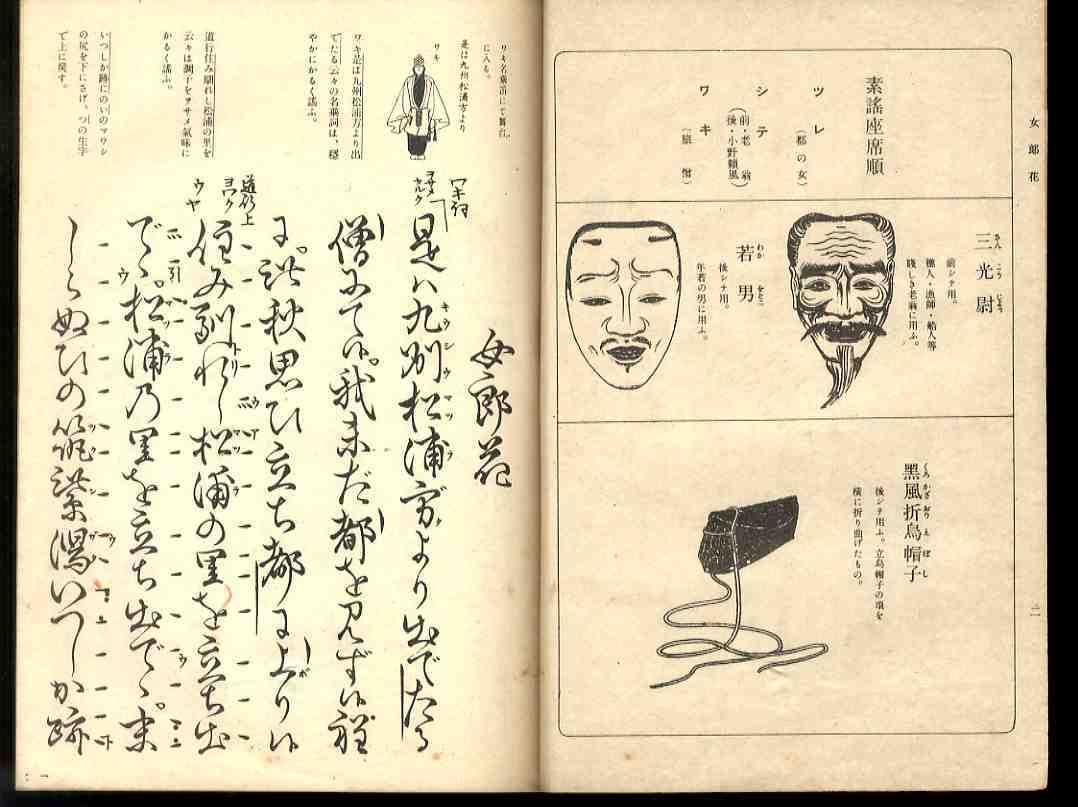 女郎花
二
素謠座席順
ツレ
(都の女)
シテ
(前・老翁
後・小野頼風)
ワキ
(旅僧)
三光尉
さんこうじよう
前シテ用。
樵人・漁師・船人等
賤しき老翁に用ふ。
若男
わかをとこ
後シテ用。
年若の男に用ふ。
黑風折烏帽子
くろかざおりえぼし
後シテ用ふ。立烏帽子の頂を
橫に折り曲げたもの。
ワキ名乘笛にて舞台
に入る。
是は九州松浦方より
ワキ
ワキ是は九州松浦方より出
でたる云々の名乘詞は、穩
やかにかるく謠ふ。
道行住み馴れし松浦の里を
云々は調子をヲサメ氣味に
かるく謠ふ。
いつしか跡にのいのマワシ
の尻を下にさげ、つの生字
で上に戾す。
女郎花
是は九州松浦方より出でたる
僧にて候。我未だ都を見ず候程
に。此秋思ひ立ち都に上り候
住み馴れし松浦の里を立ち出
で。松浦乃里を立ち出で。末
しらぬひの筑紫潟いつしか跡
一